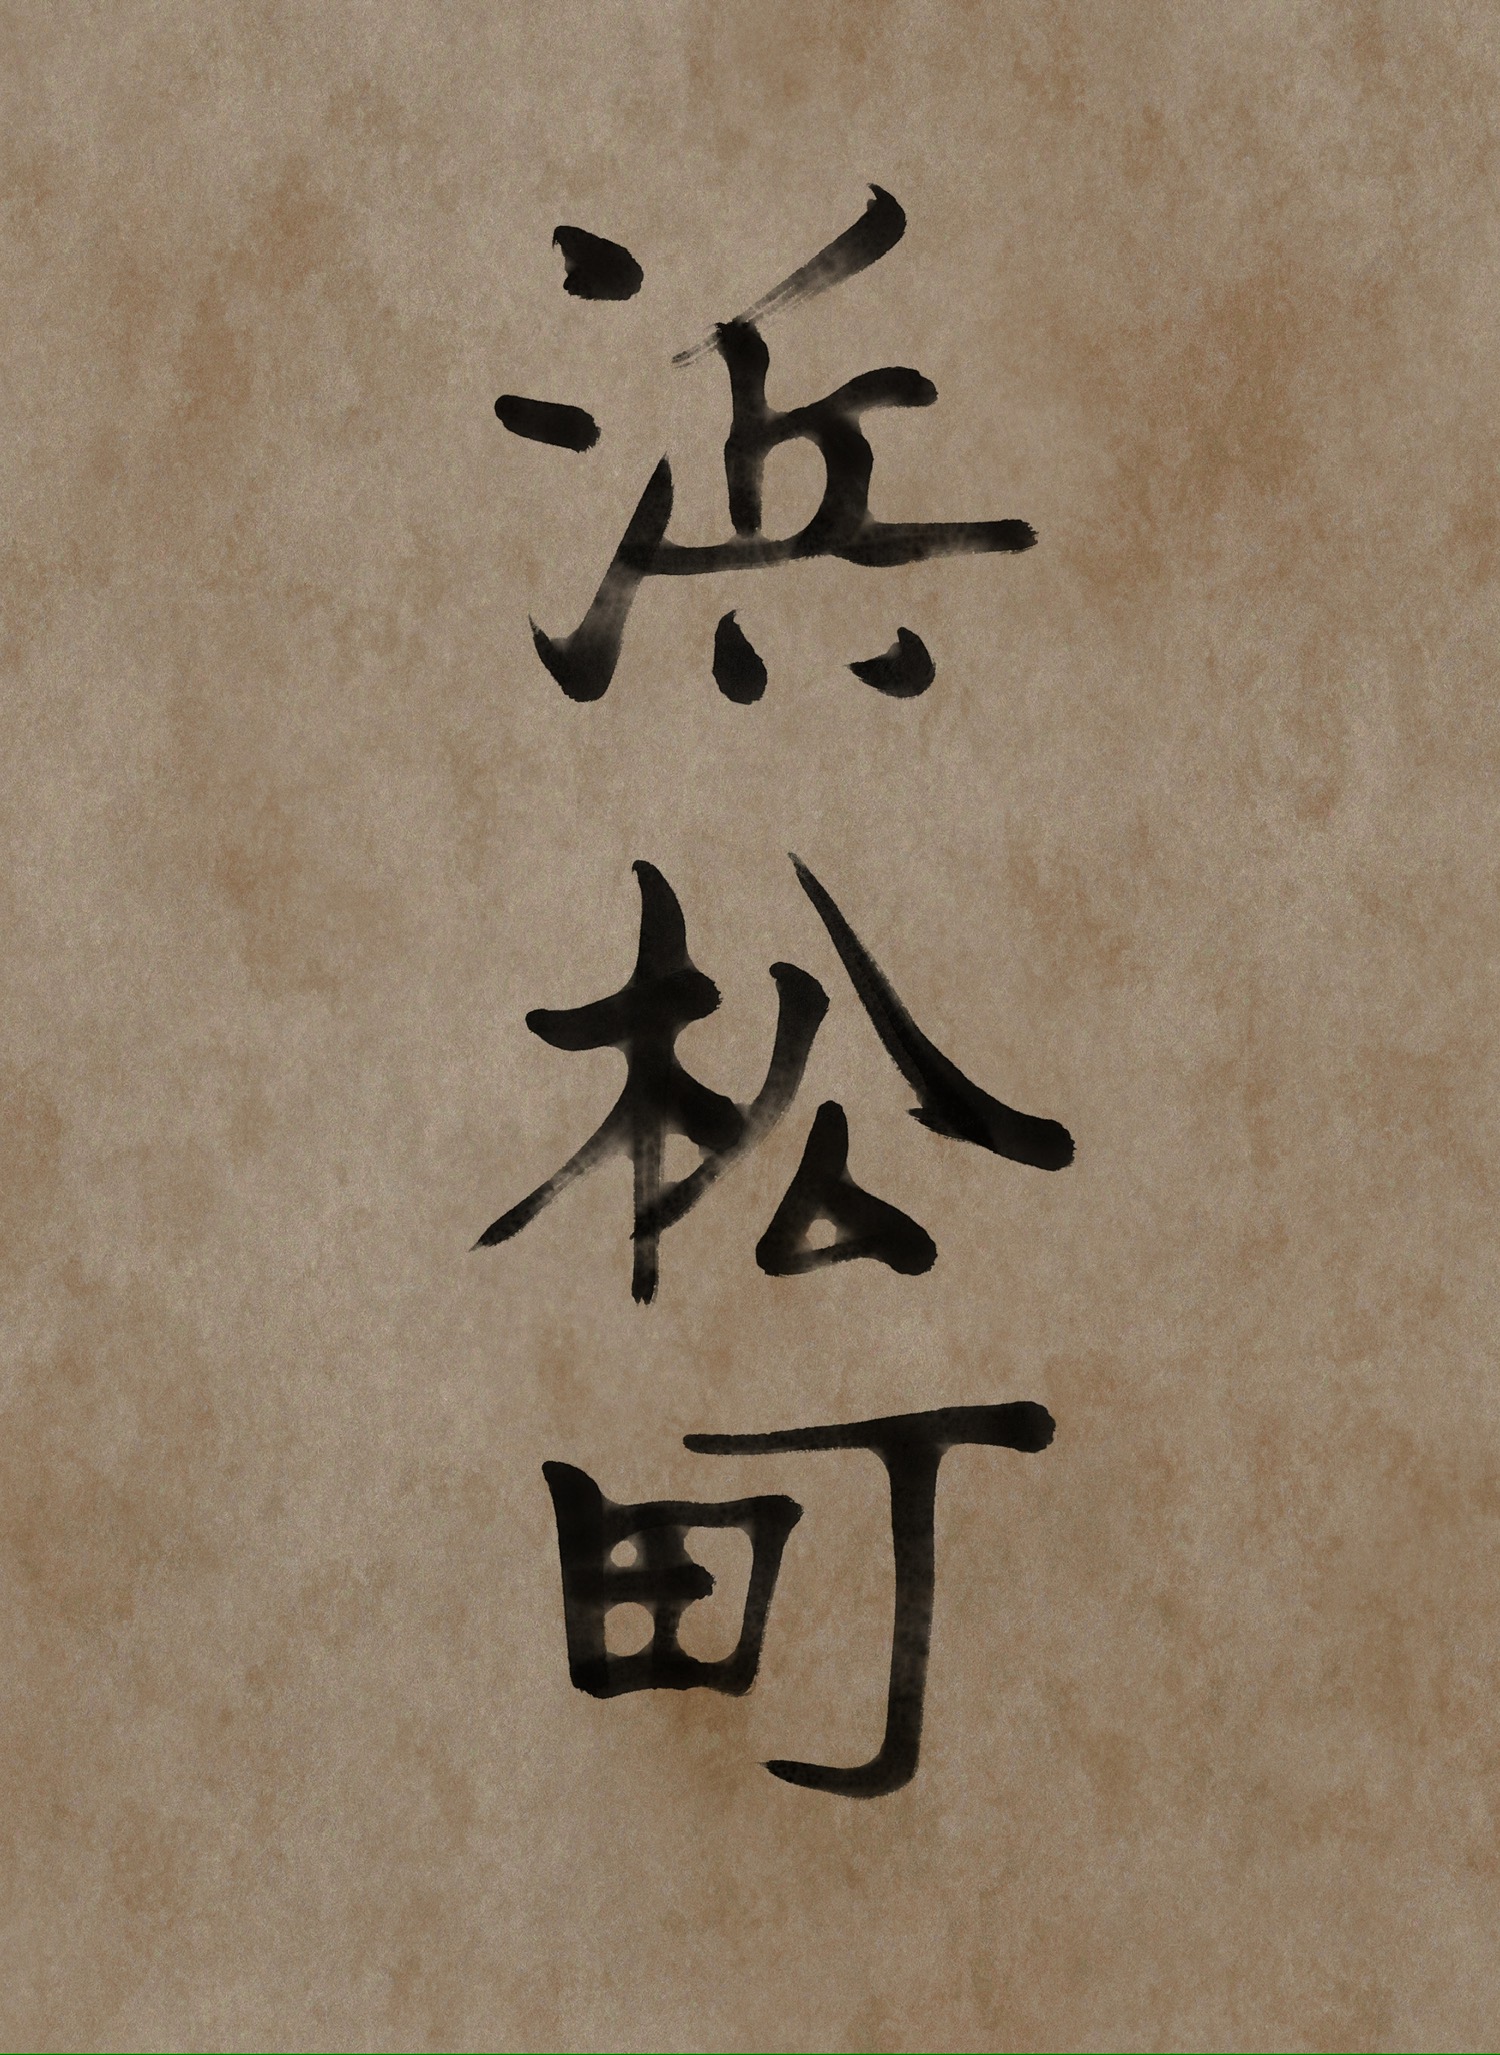 浜松町